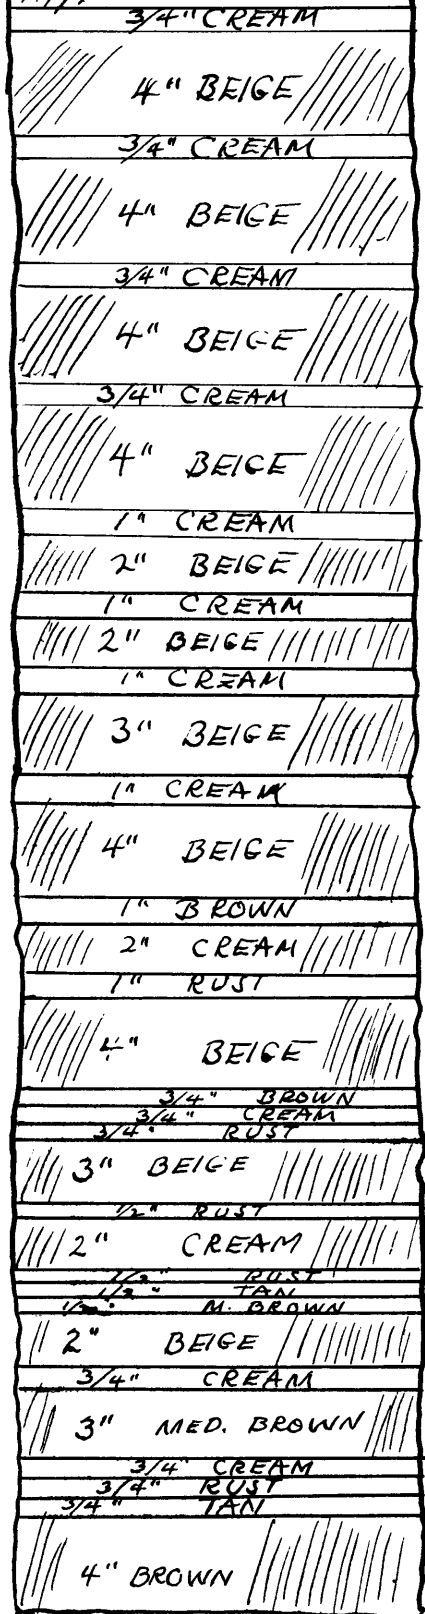 3/4" CREAM
4" BEIGE
3/4" CREAM
4" BEIGE
3/4" CREAM
4" BEIGE
3/4" CREAM
4" BEIGE
1" CREAM
2" BEIGE
1" CREAM
2" BEIGE
1" CREAM
3" BEIGE
1" CREAM
4" BEIGE
1" BROWN
2" CREAM
1" RUST
4" BEIGE
3/4" BROWN
3/4" CREAM
3/4" RUST
3" BEIGE
1/2" RUST
2" CREAM
1/2" RUST
1/2" TAN
1/2" M. BROWN
2" BEIGE
3/4" CREAM
3" MED. BROWN
3/4" CREAM
3/4" RUST
3/4" TAN
4" BROWN